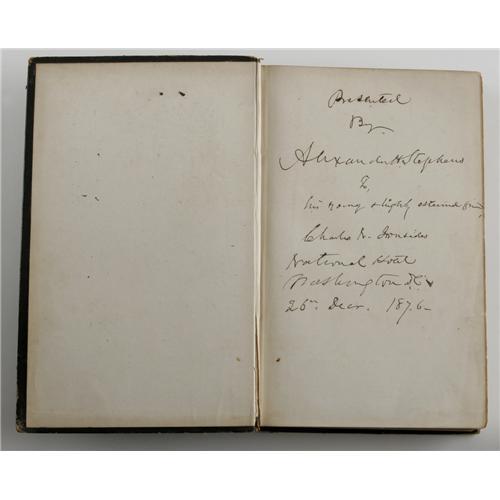 Presented
By
Alexander H. Stephens
To
his young & highly esteemed friend
Charles N. Ironsides
National Hotel
Washington D.C.
26th Decr. 1876-